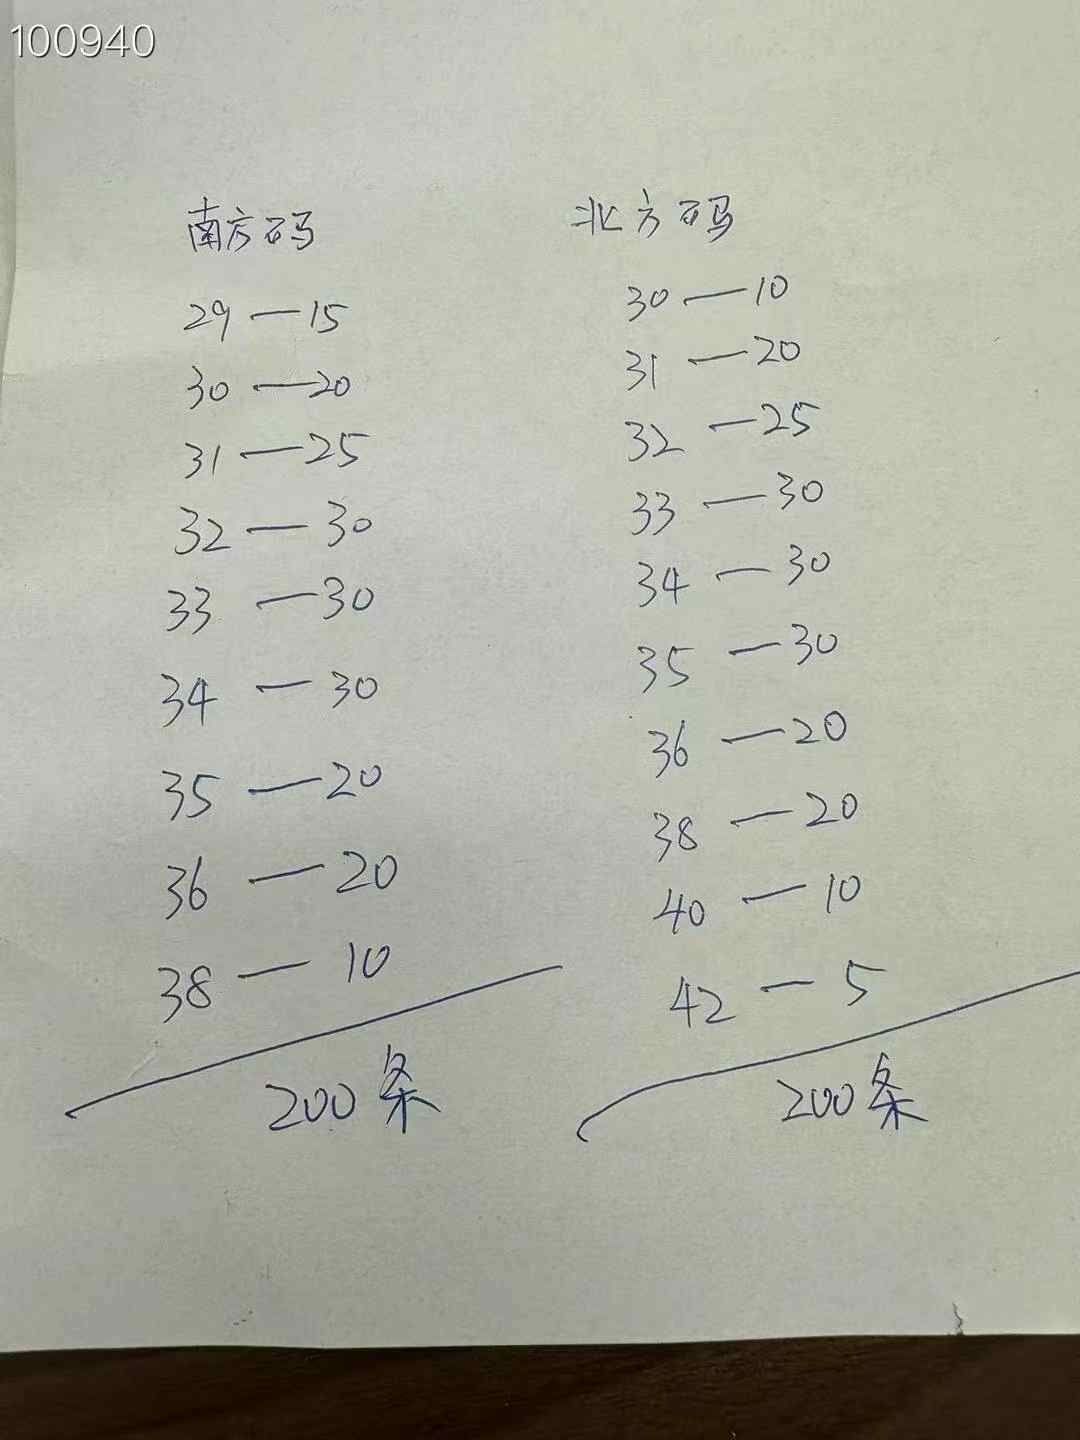 100940
南方码
29—15
30—20
31—25
32—30
33—30
34—30
35—20
36—20
38—10
200条
北方码
30—10
31—20
32—25
33—30
34—30
35—30
36—20
38—20
40—10
42—5
200条